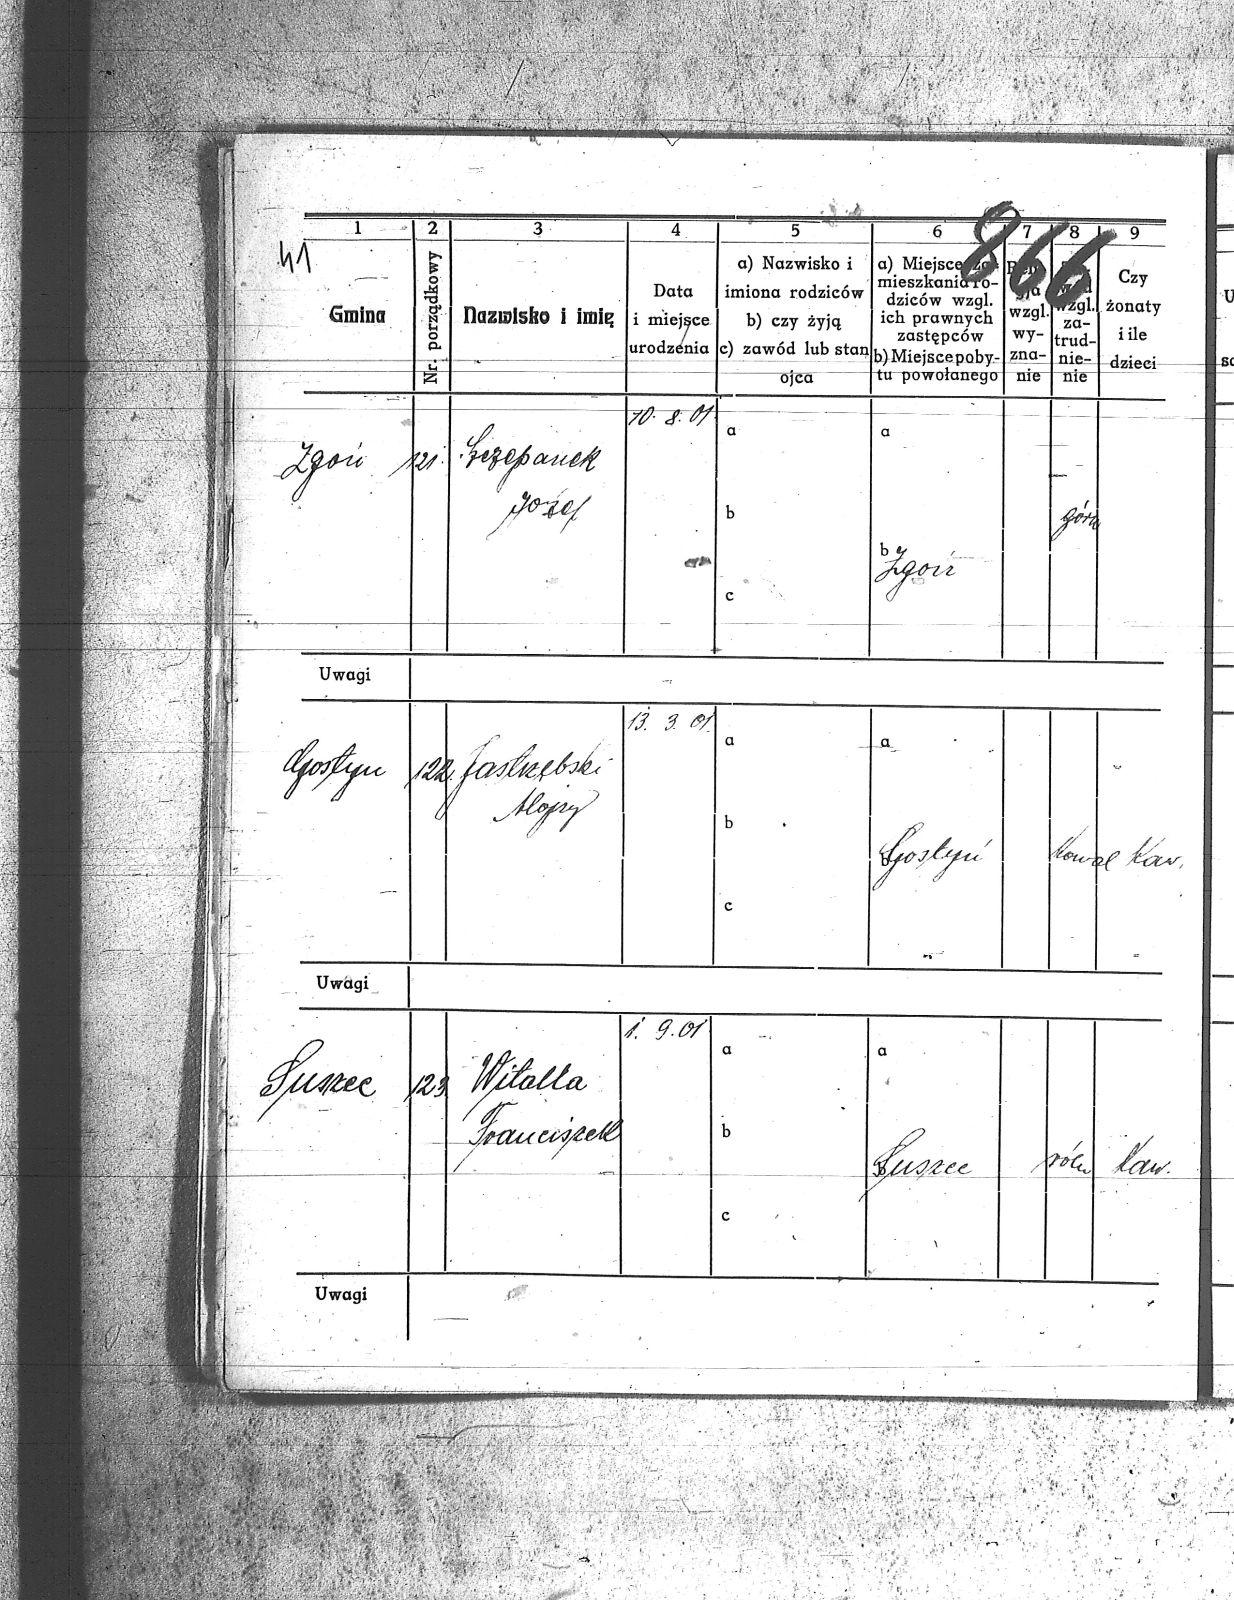 866
41
1 2 3 4 5 6 7 8 9
Gmina
Nr. porządkowy
Nazwisko i imię
Data
i miejsce
urodzenia
a) Nazwisko i
imiona rodziców
b) czy żyją
c) zawód lub stan
ojca
a) Miejsce za-
mieszkania ro-
dziców wzgl.
ich prawnych
zastępców
b) Miejsce poby-
tu powołanego
wzgl.
wy-
zna-
nie
wzgl.
za-
trud-
nie-
nie
Czy
żonaty
i ile
dzieci
10. 8. 01
a
a
Zgoń 121. Szczepanek
Józef
b
górn
b
Zgoń
c
Uwagi
13. 3. 01
a
a
Gostyń 122. Jastrzębski
Alojzy
b
b Gostyń Kowal Kaw.
c
Uwagi
1. 9. 01
a
a
Suszec 123 Witalla
Franciszek
b
b Suszec roln Kaw.
c
Uwagi